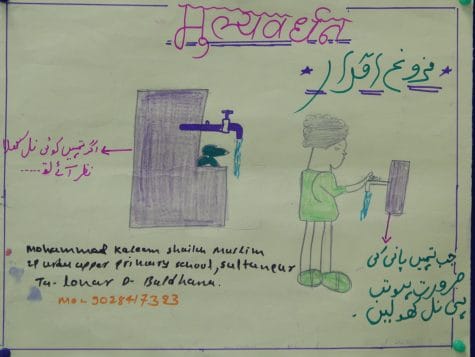 मुल्यवर्धन
فروغ اقدار
اگر تمہیں کوئی نل کھلا
نظر آئے تو.....
جب تمہیں پانی کی
ضرورت ہو تب
ہی نل کھولیں.
mohammad kaleem shaikh muslim
zp urdu upper primary school, sultanpur
Ta- lonar D- Buldhana.
mo- 9028417383